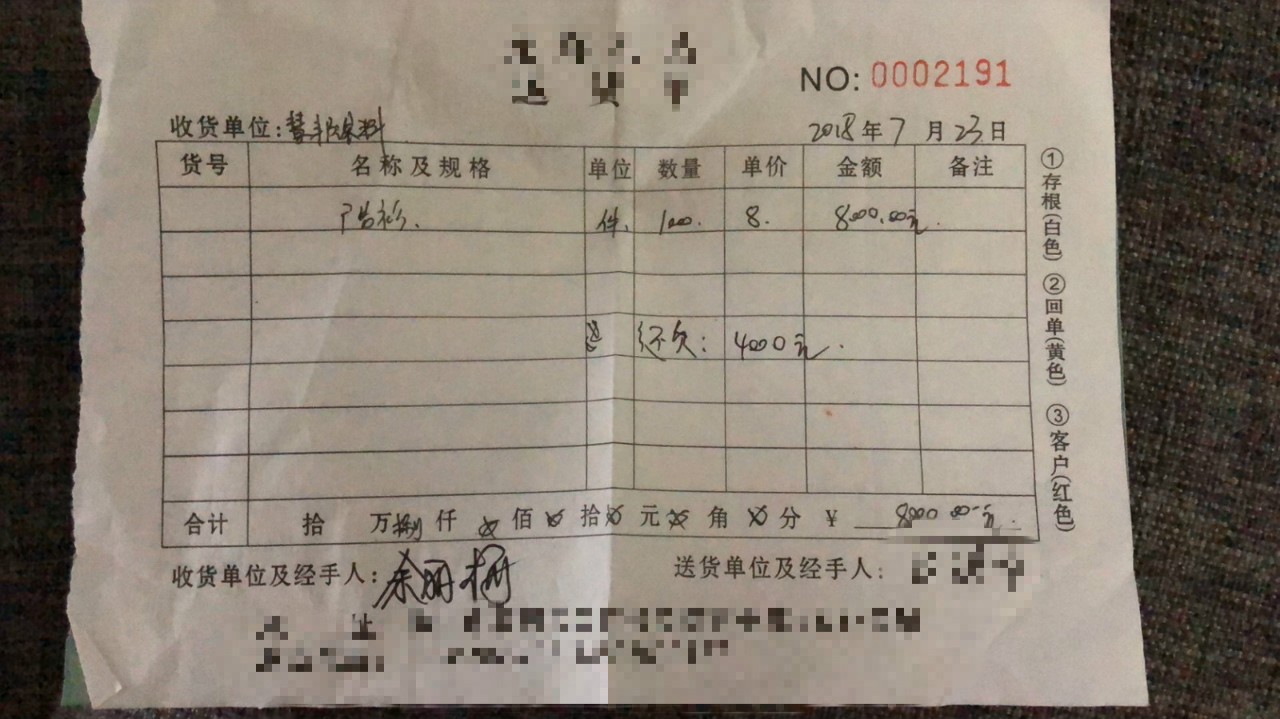 NO: 0002191
收货单位:
2018年7月23日
货号 名称及规格 单位 数量 单价 金额 备注
广告衫. 件. 1000. 8. 8000.00元.
还欠: 4000元.
合计 拾 万捌仟 佰 拾 元 角 分 ¥ 8000.00元.
收货单位及经手人:
送货单位及经手人:
①存根(白色) ②回单(黄色) ③客户(红色)